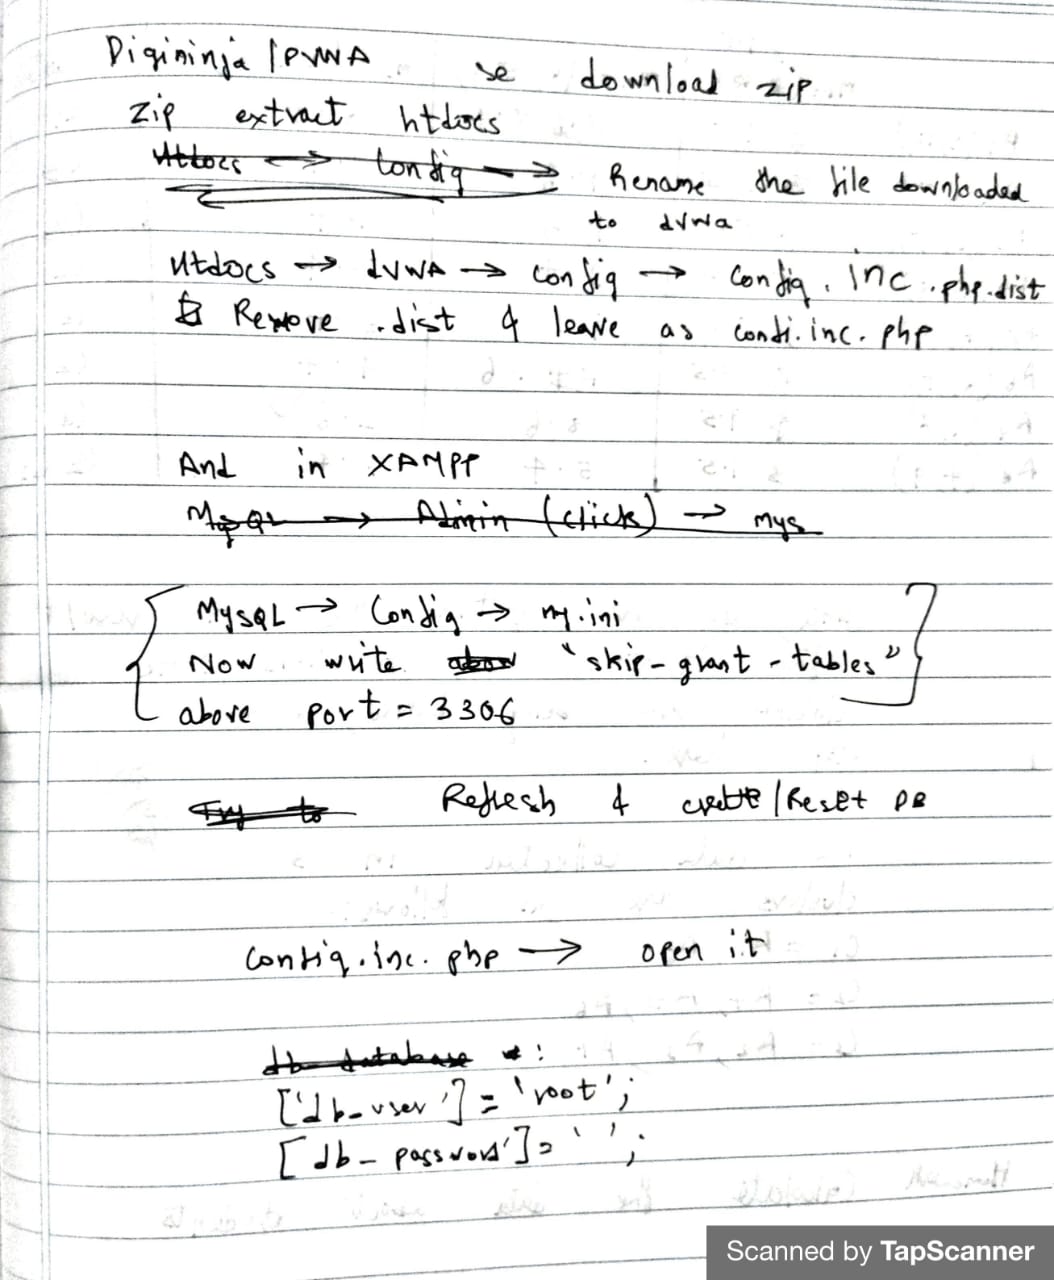 Digininja / DVWA se download zip
Zip extract htdocs
Htdocs → Config → Rename the file downloaded
to dvwa
Htdocs → dVWA → config → Config. inc .php.dist
Remove .dist & leave as confi.inc.php
And in XAMPP
MySQL → Admin (click) → mys
MysQL → Config → my.ini
Now write above "skip-grant-tables"
above port = 3306
Try to Refresh & create/Reset DB
Config.inc.php → open it
db database :
['db_user'] = 'root';
[db_password'] = ' ';
Scanned by TapScanner